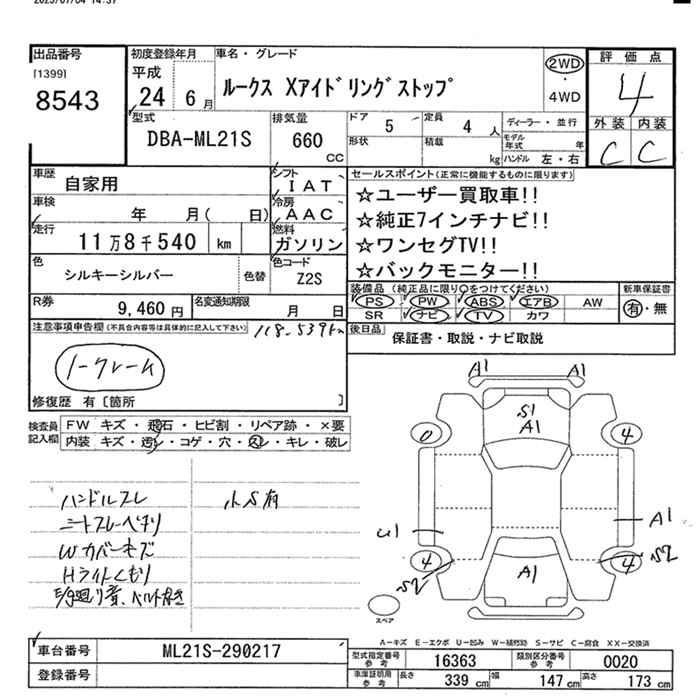 2025/07/04 14:37
出品番号
[1399]
8543
初度登録年月
平成
24 6月
車名・グレード
ルークス Xアイドリングストップ
2WD
4WD
評価点
4
外装 内装
C C
型式
DBA-ML21S
排気量
660
CC
ドア 5
形状
定員 4 人
積載 kg
ディーラー・並行
モデル年式 年
ハンドル 左・右
車歴
自家用
シフト
IAT
車検
年 月( 日)
冷房
AAC
走行
11万8千540 km
燃料
ガソリン
色
シルキーシルバー
色替
色コード
Z2S
R券
9,460円
名変通知期限
月 日
セールスポイント(正常に機能するものに限ります)
☆ユーザー買取車!!
☆純正7インチナビ!!
☆ワンセグTV!!
☆バックモニター!!
装備品(純正品に限り○をつけてください)
PS PW ABS エアB AW
SR ナビ TV カワ
新車保証書
有・無
後日品
保証書・取説・ナビ取説
注意事項申告欄(不具合内容等は具体的に記入して下さい)
118.539km
ノークレーム
修復歴 有〔箇所 〕
検査員記入欄
FW キズ・飛石・ヒビ割・リペア跡・×要
内装 キズ・汚レ・コゲ・穴・スレ・キレ・破レ
ハンドルスレ
小S有
Wカバーキズ
Hライトくもり
A1 A1
S1
A1
0 4
U1 A1
4 4
S2 S2
A1
スペア
A-キズ E-エクボ U-凹み W-補修跡 S-サビ C-腐食 XX-交換済
車台番号
ML21S-290217
登録番号
型式指定番号 参考
16363
類別区分番号 参考
0020
車庫証明用 参考
長さ 339 cm 幅 147 cm 高さ 173 cm